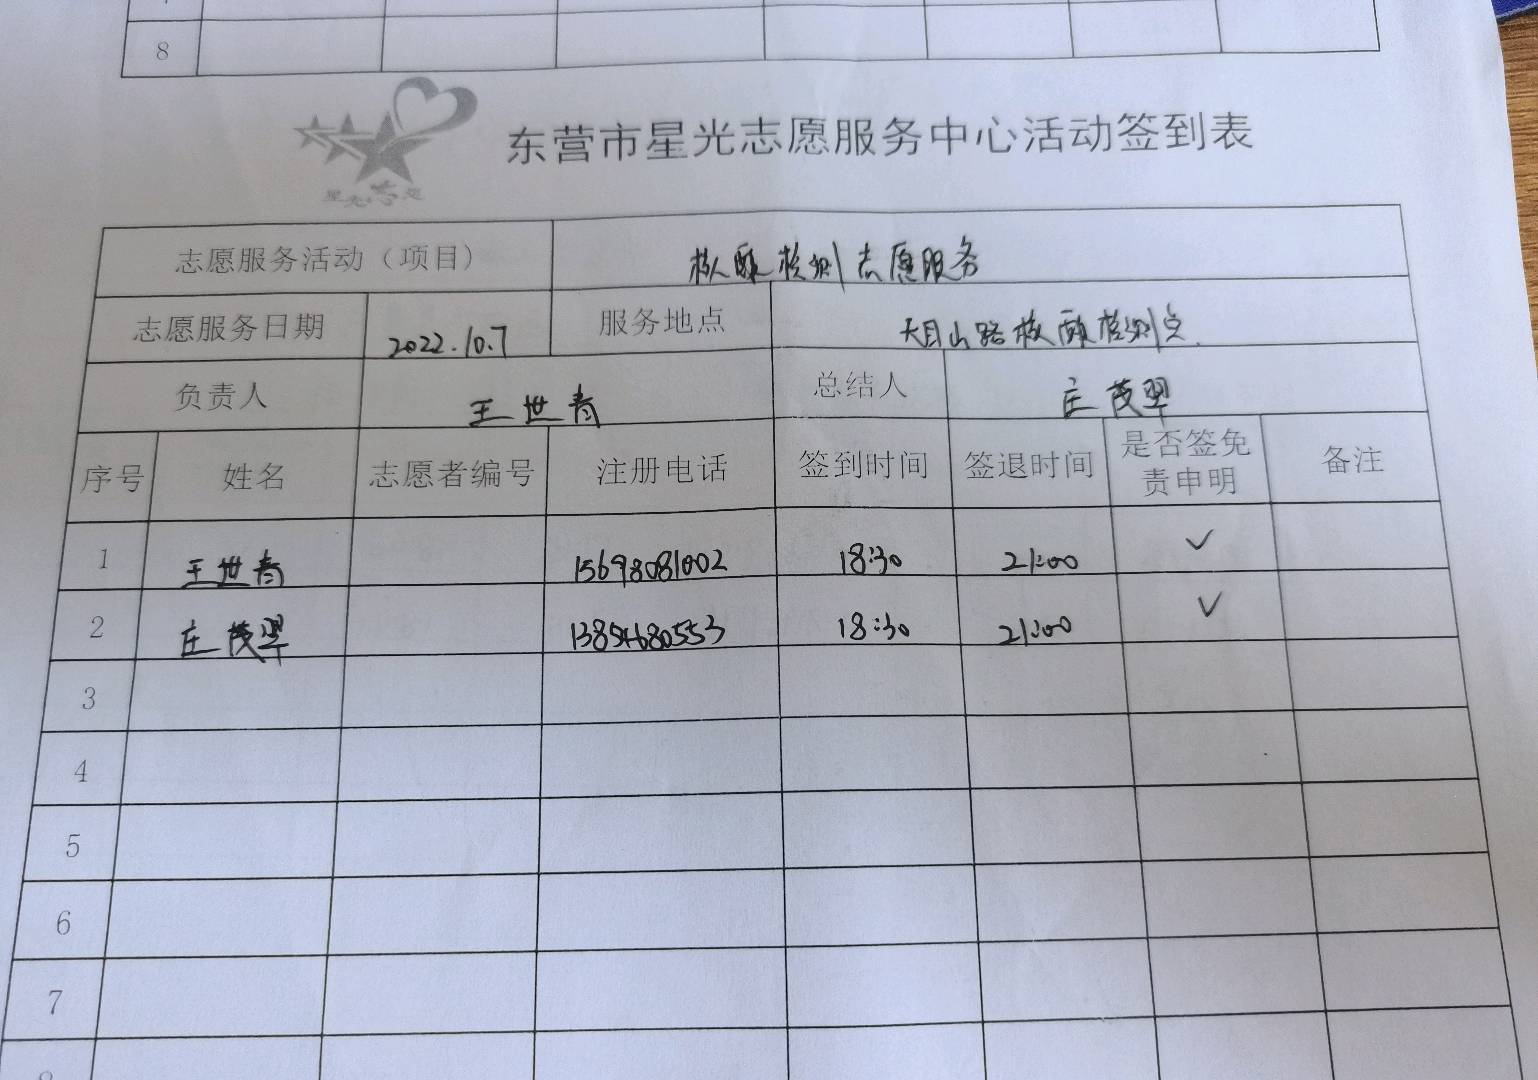 8
星光志愿
东营市星光志愿服务中心活动签到表
志愿服务活动（项目） 核酸检测志愿服务
志愿服务日期 2022.10.7 服务地点 天目山路核酸检测点
负责人 王世春 总结人 庄茂翠
序号 姓名 志愿者编号 注册电话 签到时间 签退时间 是否签免责申明 备注
1 王世春 15698081002 18:30 21:00 ✓
2 庄茂翠 13854680553 18:30 21:00 ✓
3
4
5
6
7